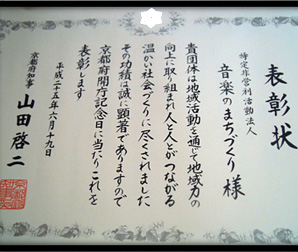 表彰状
特定非営利活動法人
音楽のまちづくり様
貴団体は地域活動を通じて地域力の
向上に取り組まれ人と人とがつながる
温かい社会づくりに尽くされました
その功績は誠に顕著でありますので
京都府開庁記念日に当たりこれを
表彰します
平成二十五年六月十九日
京都府知事
山田啓二